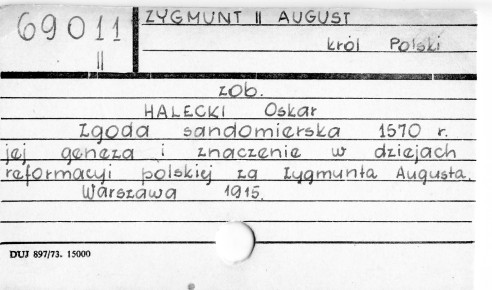 69011
II
ZYGMUNT II AUGUST
król Polski
zob.
HALECKI Oskar
Zgoda sandomierska 1570 r.
jej geneza i znaczenie w dziejach
reformacyi polskiej za Zygmunta Augusta.
Warszawa 1915.
DUJ 897/73. 15000